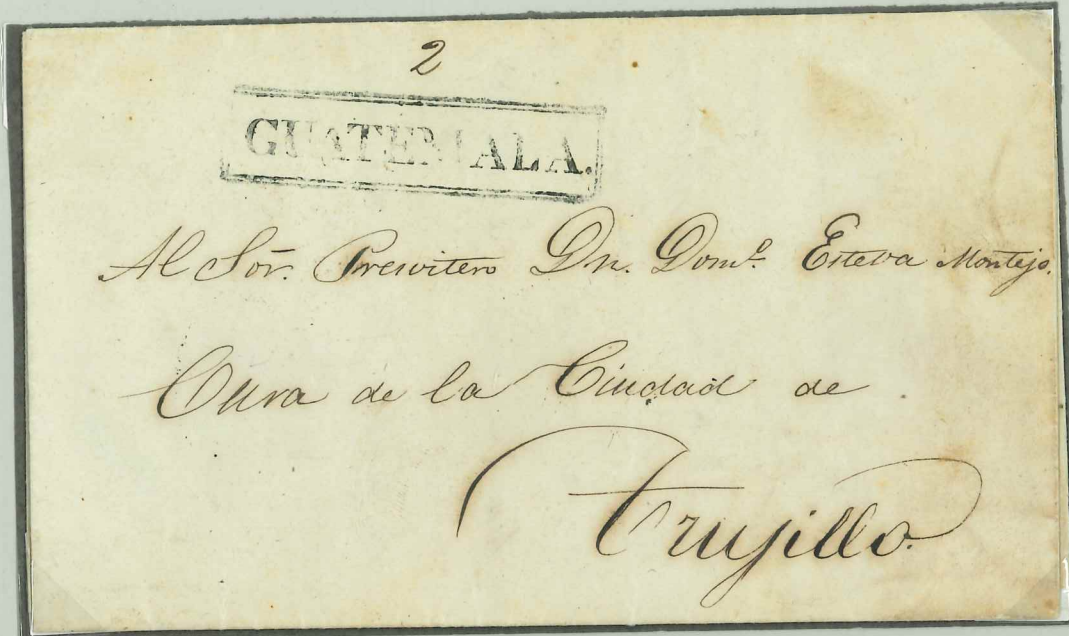 2
GUATEMALA.
Al Sor. Preswitero Dn. Domo. Esteva Montejo.
Cura de la Ciudad de
Trujillo.